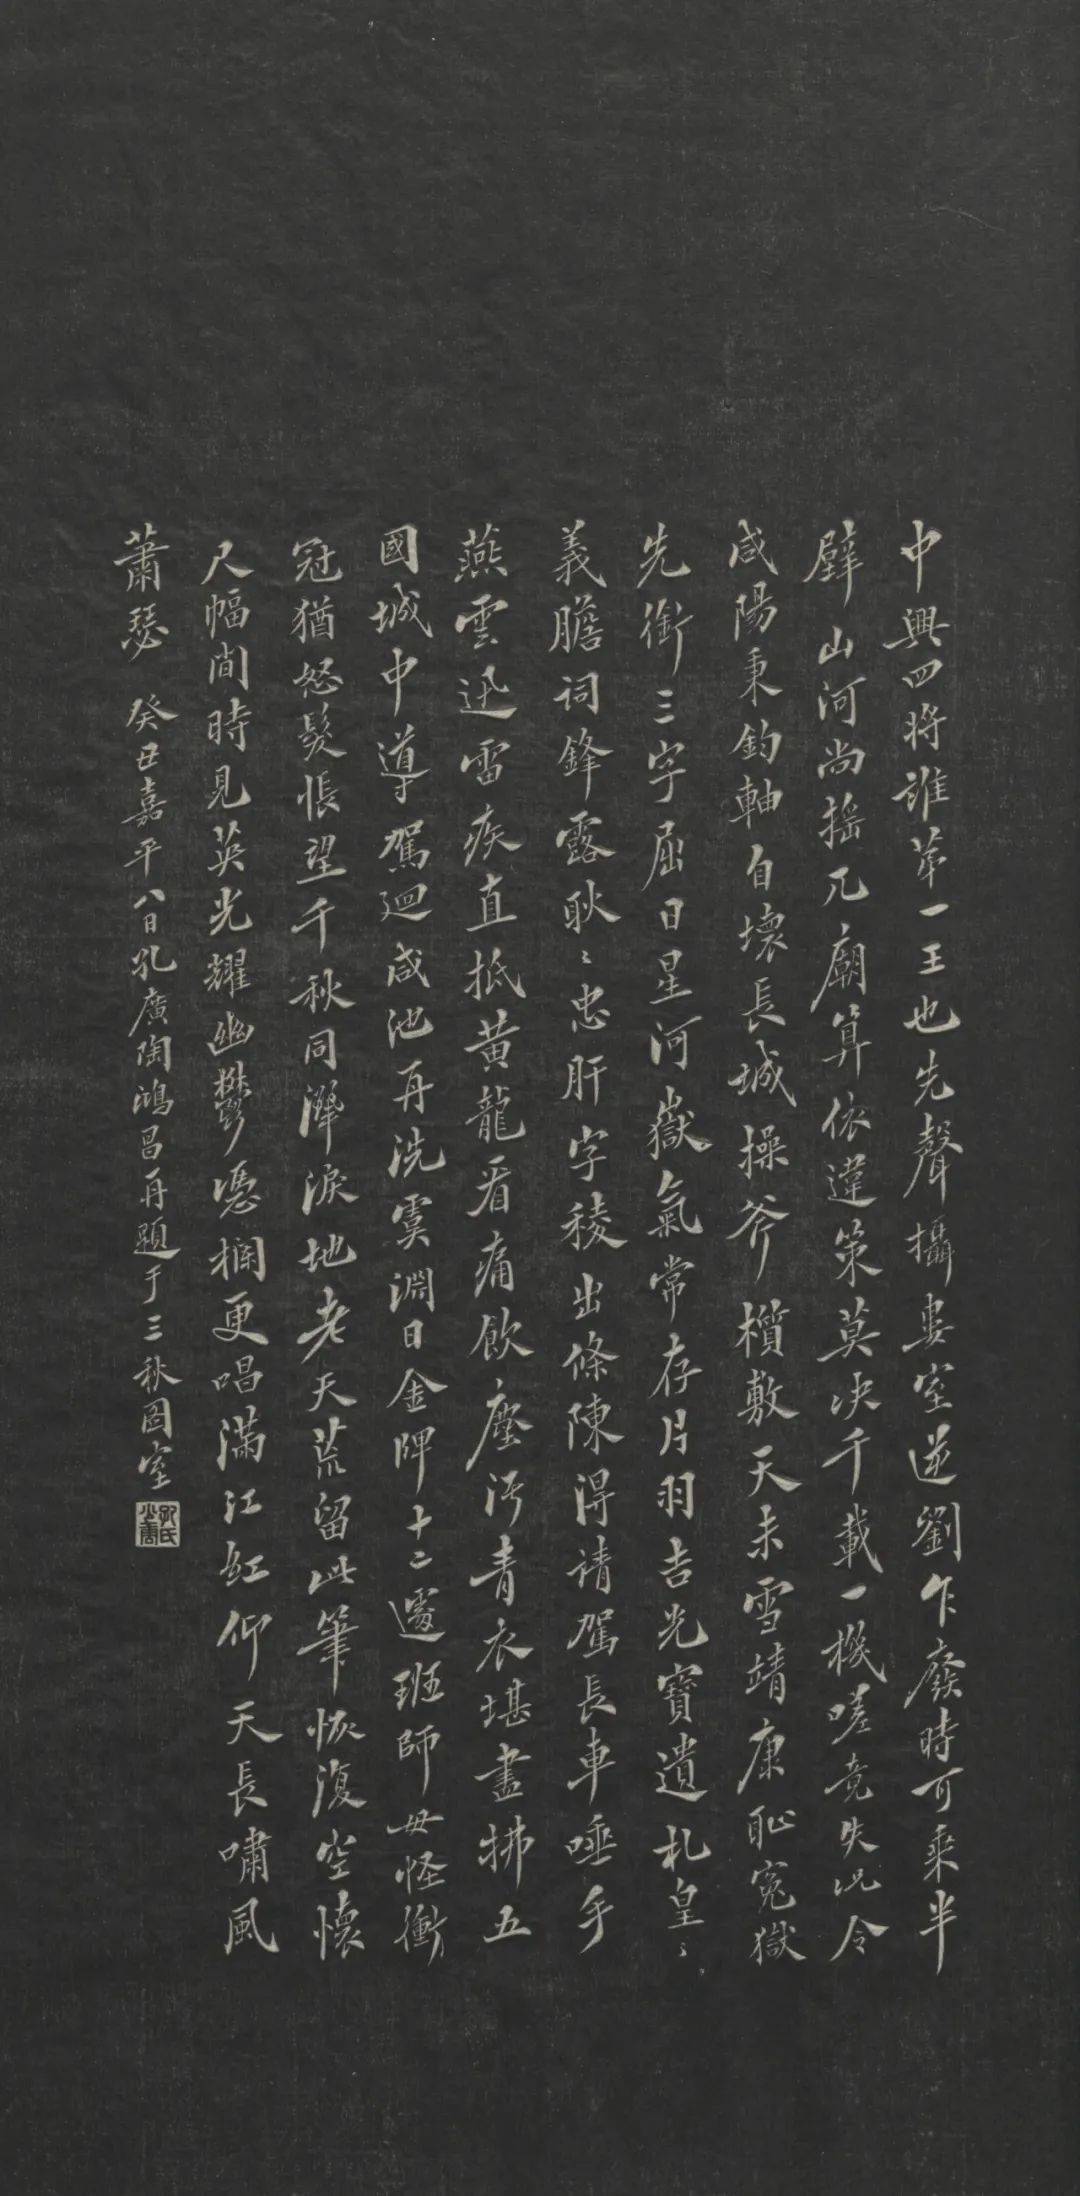 中興四將誰第一王也先聲攝婁室逆劉乍廢時可乘半
壁山河尚搖兀廟算依違策莫決千載一機嗟竟失况令
咸陽秉鈞軸自壞長城操斧櫍敷天未雪靖康恥冤獄
先銜三字屈日星河嶽氣常存片羽吉光寶遺札皇〻
義膽詞鋒露耿〻忠肝字稜出條陳得請駕長車唾手
燕雲迅雷疾直抵黃龍看痛飲塵污青衣堪盡拂五
國城中導駕迴咸池再洗虞淵日金牌十二遽班師毋怪衝
冠猶怒髮悵望千秋同灑淚地老天荒留此筆恢復空懷
尺幅間時見英光耀幽鬱憑欄更唱滿江紅仰天長嘯風
蕭瑟 癸丑嘉平八日孔廣陶鴻昌再題于三秋圖室
孔氏少唐